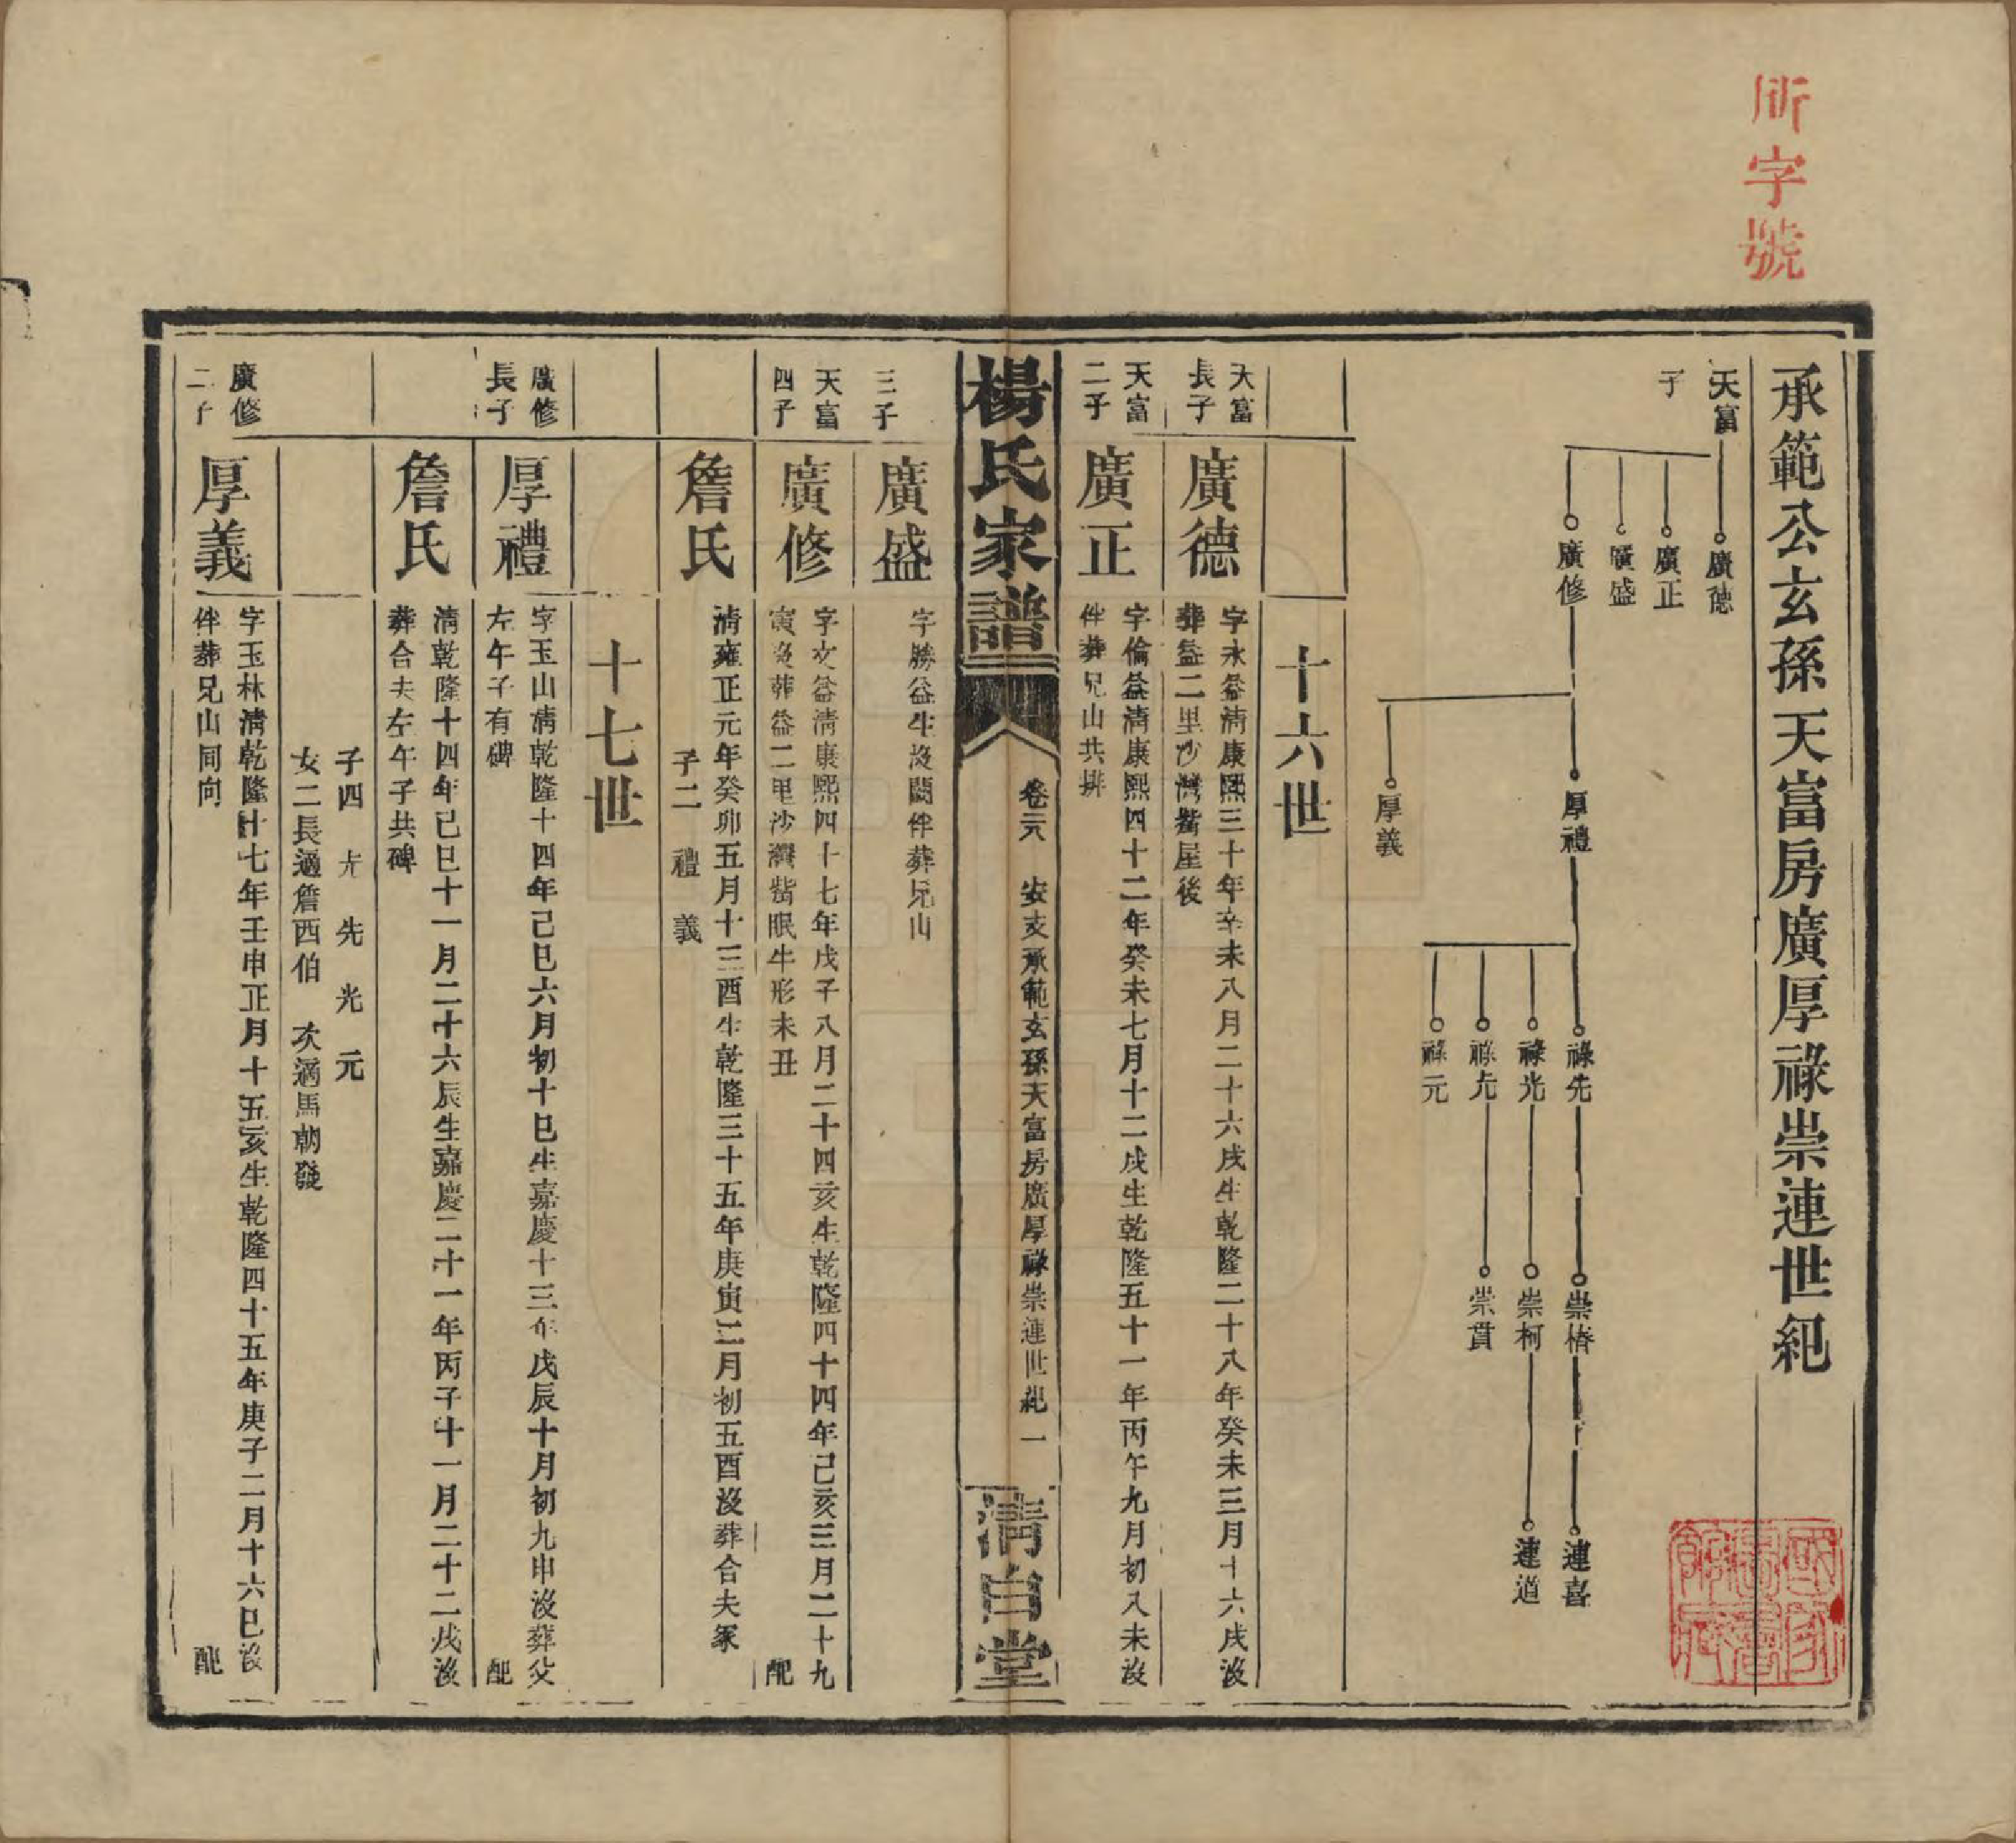 字號
承範公玄孫天富房廣厚祿崇連世紀
天富
子
廣德
廣正
廣盛
廣修
厚禮
厚義
祿先
祿光
祿元
崇椿
崇柯
崇貫
連喜
連道
十六世
天富長子
廣德
字永益清康熙三十年辛未八月二十六戌生乾隆二十八年癸未三月十六戌沒
葬益二里沙灣觜屋後
天富二子
廣正
字倫益清康熙四十二年癸未七月十二戌生乾隆五十一年丙午九月初八未沒
伴葬兄山共排
楊氏家譜
卷二八
安支承範玄孫天富房廣厚祿崇連世紀
一
清白堂
三子
廣盛
字勝益生沒闕伴葬兄山
天富四子
廣修
字文益清康熙四十七年戊子八月二十四亥生乾隆四十四年己亥三月二十九
寅沒葬益二里沙灣觜眠牛形未丑
配
詹氏
清雍正元年癸卯五月十三酉生乾隆三十五年庚寅二月初五酉沒葬合夫冢
子二 禮 義
十七世
廣修長子
厚禮
字玉山清乾隆十四年己巳六月初十巳生嘉慶十三年戊辰十月初九申沒葬父
左午子有碑
配
詹氏
清乾隆十四年己巳十一月二十六辰生嘉慶二十一年丙子十一月二十二戌沒
葬合夫左午子共碑
子四 先 光 元
女二長適詹西伯 次適馬朝發
廣修二子
厚義
字玉林清乾隆十七年壬申正月十五亥生乾隆四十五年庚子二月十六巳沒
伴葬兄山同向
配